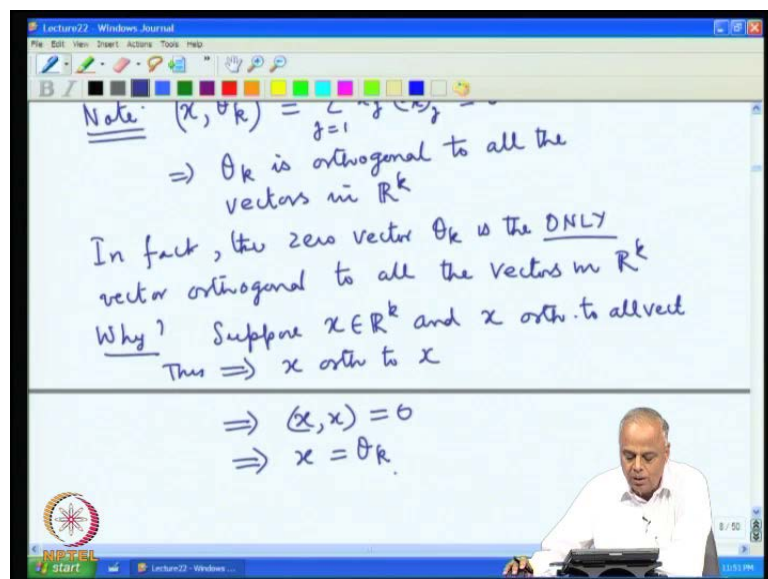 Lecture22 - Windows Journal
File Edit View Insert Actions Tools Help
B I
Note: (x, θk) = Σ j=1
⇒ θk is orthogonal to all the
vectors in ℝ^k
In fact, the zero vector θk is the ONLY
vector orthogonal to all the vectors in ℝ^k
Why? Suppose x ∈ ℝ^k and x orth. to all vect
Thus ⇒ x orth to x
⇒ (x, x) = 0
⇒ x = θk.
8 / 50
NPTEL
start Lecture22 - Windows ... 11:51 PM